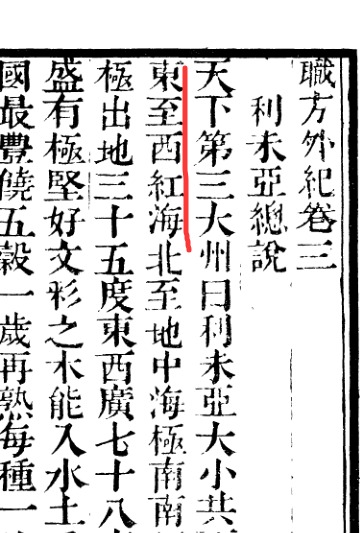 職方外紀卷三
利未亞總說
天下第三大州曰利未亞大小共
東至西紅海北至地中海極南南
極出地三十五度東西廣七十八
盛有極堅好文彩之木能入水土
國最豐饒五穀一歲再熟每種一